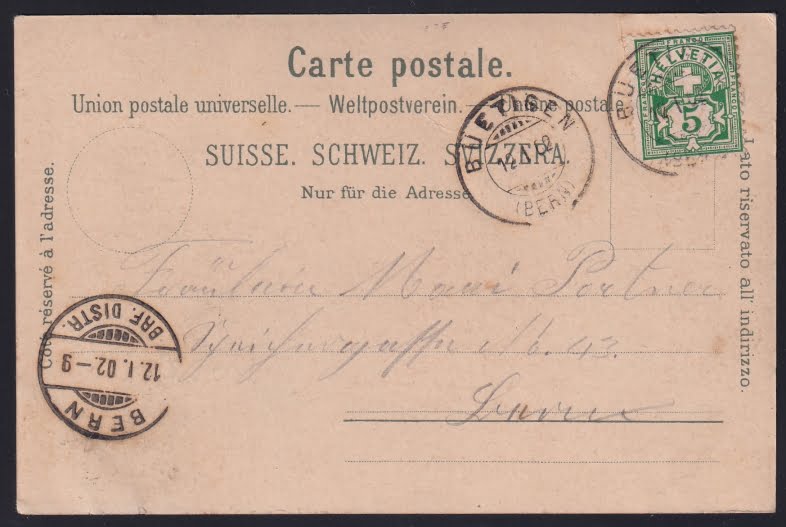 Carte postale.
Union postale universelle. — Weltpostverein. — Unione postale
SUISSE. SCHWEIZ. SVIZZERA.
Nur für die Adresse
Côté réservé à l'adresse.
Lato riservato all' indirizzo.
FRANCO
HELVETIA
5
BUETIGEN
(BERN)
Fräulein Portner
No. 43.
Bern
BERN
12.I.02-9
BRF. DISTR.